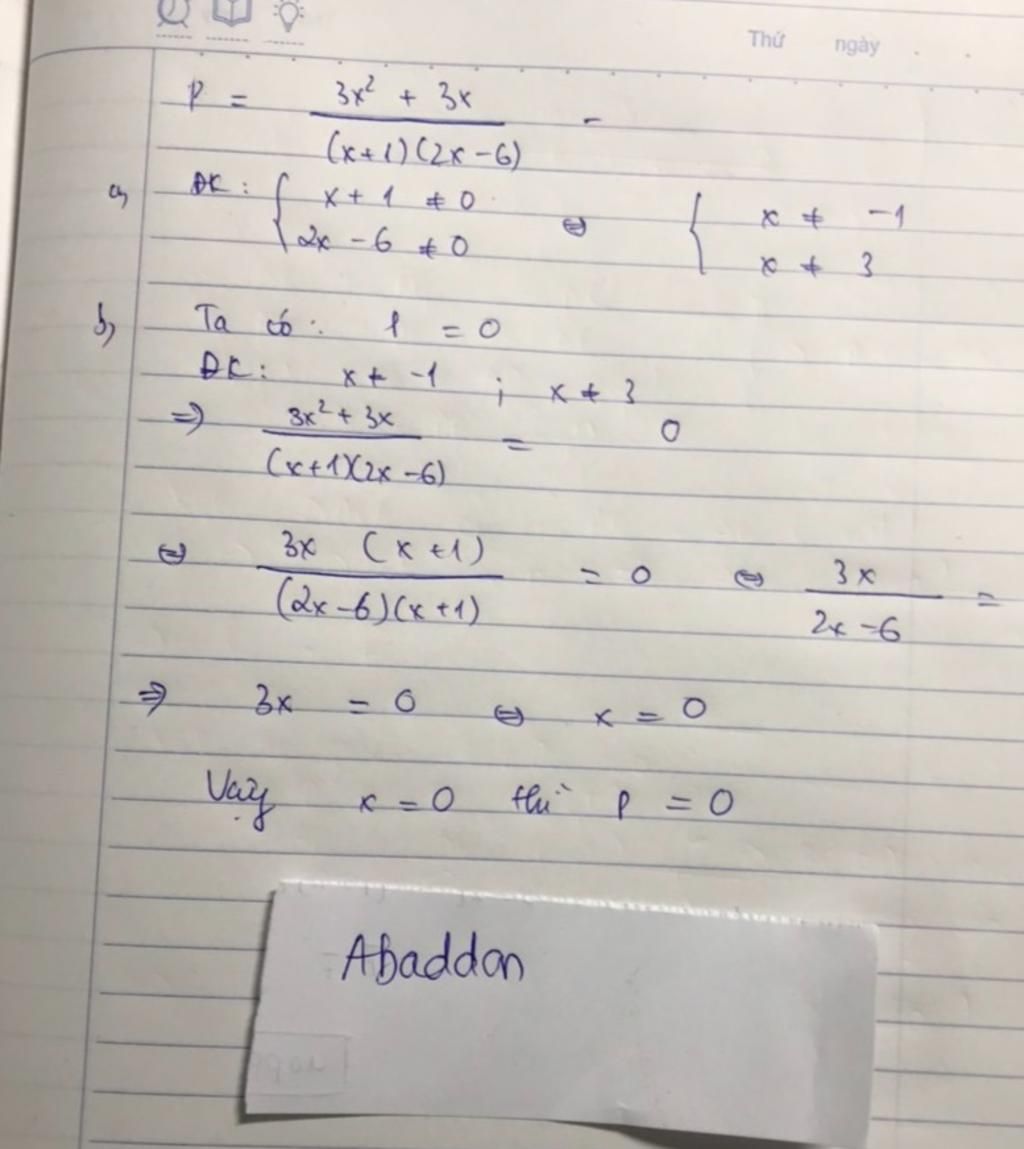 Thứ ngày
P = \frac{3x² + 3x}{(x+1)(2x-6)} -
a, ĐK: { x + 1 ≠ 0 ⇔ { x ≠ -1
2x - 6 ≠ 0 x ≠ 3
b, Ta có: P = 0
ĐK: x ≠ -1 ; x ≠ 3
⇒ \frac{3x² + 3x}{(x+1)(2x-6)} = 0
⇔ \frac{3x (x+1)}{(2x-6)(x+1)} = 0 ⇔ \frac{3x}{2x-6} =
⇒ 3x = 0 ⇔ x = 0
Vậy x = 0 thì P = 0
Abaddon